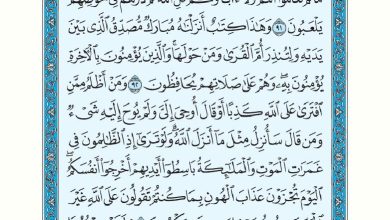 ذَرْهُمْ فِى خَوْضِهِمْ
يَلْعَبُونَ ٩١ وَهَٰذَا كِتَٰبٌ أَنزَلْنَٰهُ مُبَارَكٌ مُّصَدِّقُ ٱلَّذِى بَيْنَ
يَدَيْهِ وَلِتُنذِرَ أُمَّ ٱلْقُرَىٰ وَمَنْ حَوْلَهَا وَٱلَّذِينَ يُؤْمِنُونَ بِٱلْأَخِرَةِ
يُؤْمِنُونَ بِهِۦ وَهُمْ عَلَىٰ صَلَاتِهِمْ يُحَافِظُونَ ٩٢ وَمَنْ أَظْلَمُ مِمَّنِ
ٱفْتَرَىٰ عَلَى ٱللَّهِ كَذِبًا أَوْ قَالَ أُوحِىَ إِلَىَّ وَلَمْ يُوحَ إِلَيْهِ شَىْءٌ
وَمَن قَالَ سَأُنزِلُ مِثْلَ مَآ أَنزَلَ ٱللَّهُ وَلَوْ تَرَىٰٓ إِذِ ٱلظَّٰلِمُونَ فِى
غَمَرَٰتِ ٱلْمَوْتِ وَٱلْمَلَٰٓئِكَةُ بَاسِطُوٓا۟ أَيْدِيهِمْ أَخْرِجُوٓا۟ أَنفُسَكُمُ
ٱلْيَوْمَ تُجْزَوْنَ عَذَابَ ٱلْهُونِ بِمَا كُنتُمْ تَقُولُونَ عَلَى ٱللَّهِ غَيْرَ